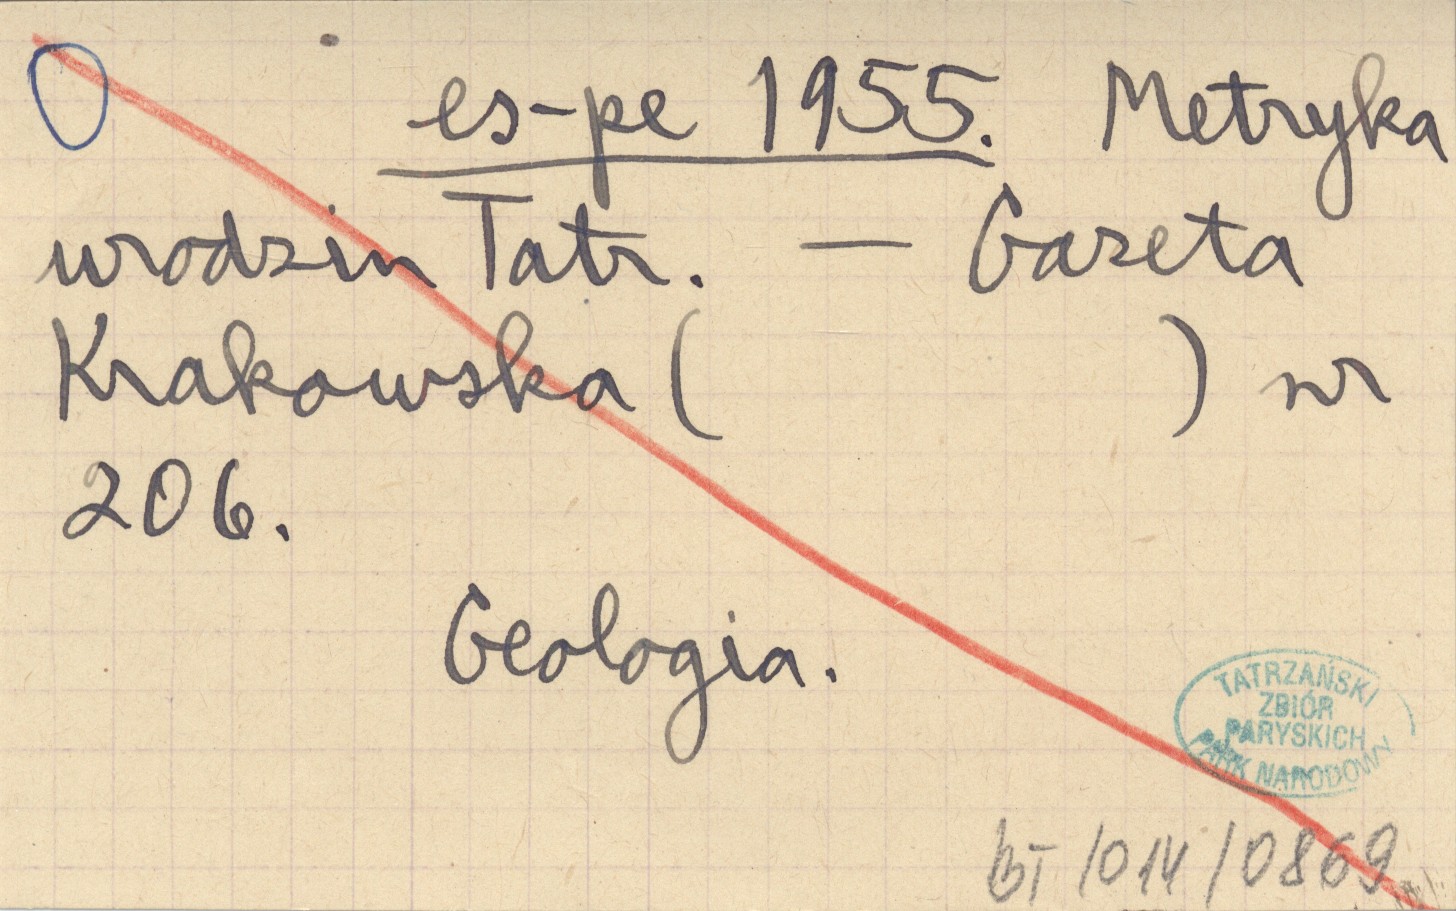 es-pe 1955. Metryka
urodzin Tatr. — Gazeta
Krakowska ( ) nr
206.
Geologia.
TATRZAŃSKI
ZBIÓR
PARYSKICH
PARK NARODOWY
BT/014/0869